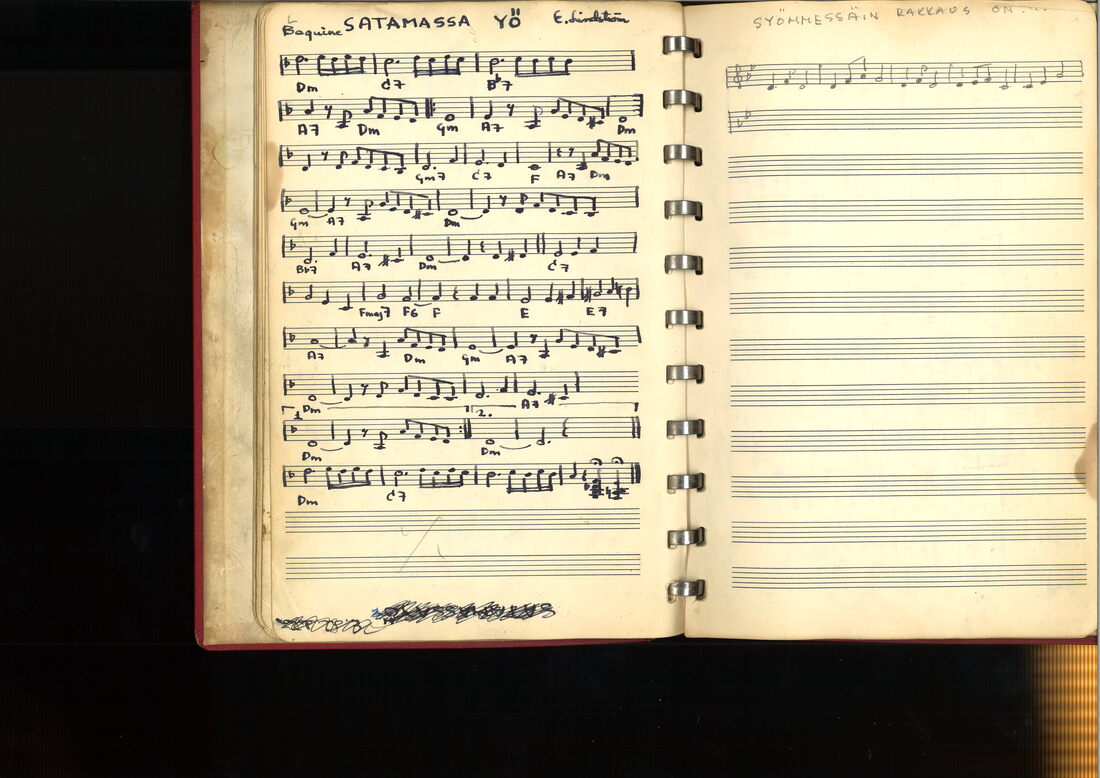 SATAMASSA YÖ E. Lindström
Beguine
Dm C7 Bb7
A7 Dm Gm A7 Dm
Gm7 C7 F A7 Dm
Gm A7 Dm
Bb7 A7 Dm C7
Fmaj7 F6 F E E7
A7 Dm Gm A7
Dm A7
1. 2.
Dm Dm
Dm C7
SYÖMMESSÄIN RAKKAUS ON....